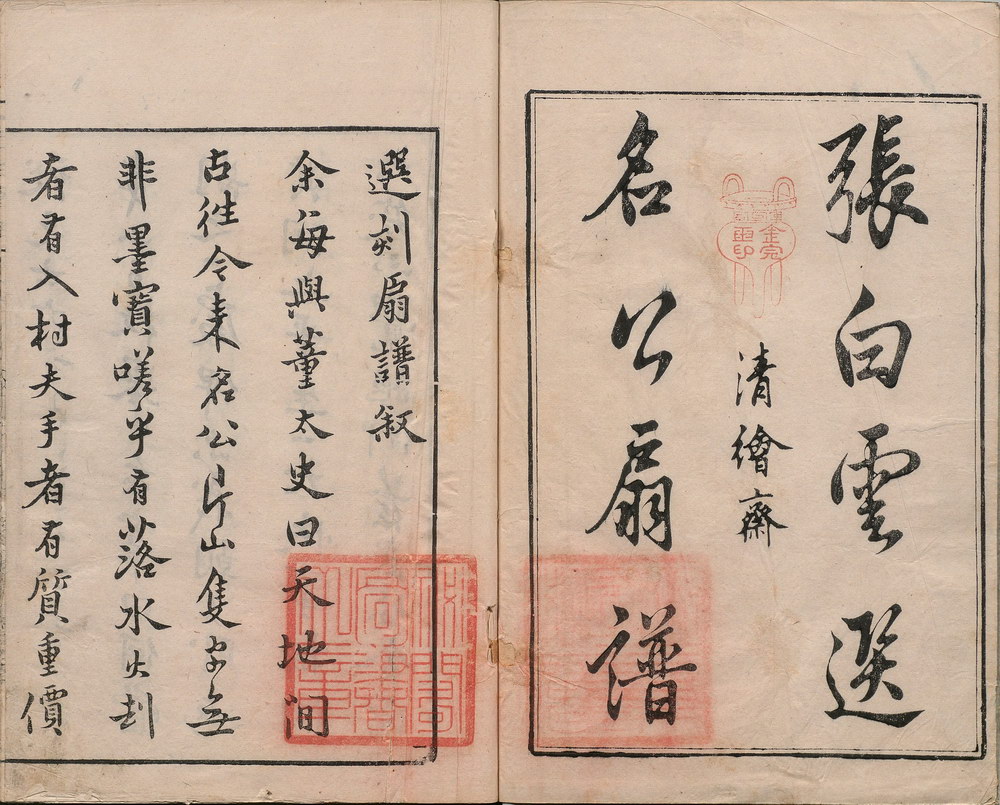 張白雲選
清繪齋
名公扇譜
選刻扇譜叙
余每與董太史曰天地間
古徃今来名公片山隻字無
非墨寶嗟乎有落水火刦
者有入村夫手者有質重價